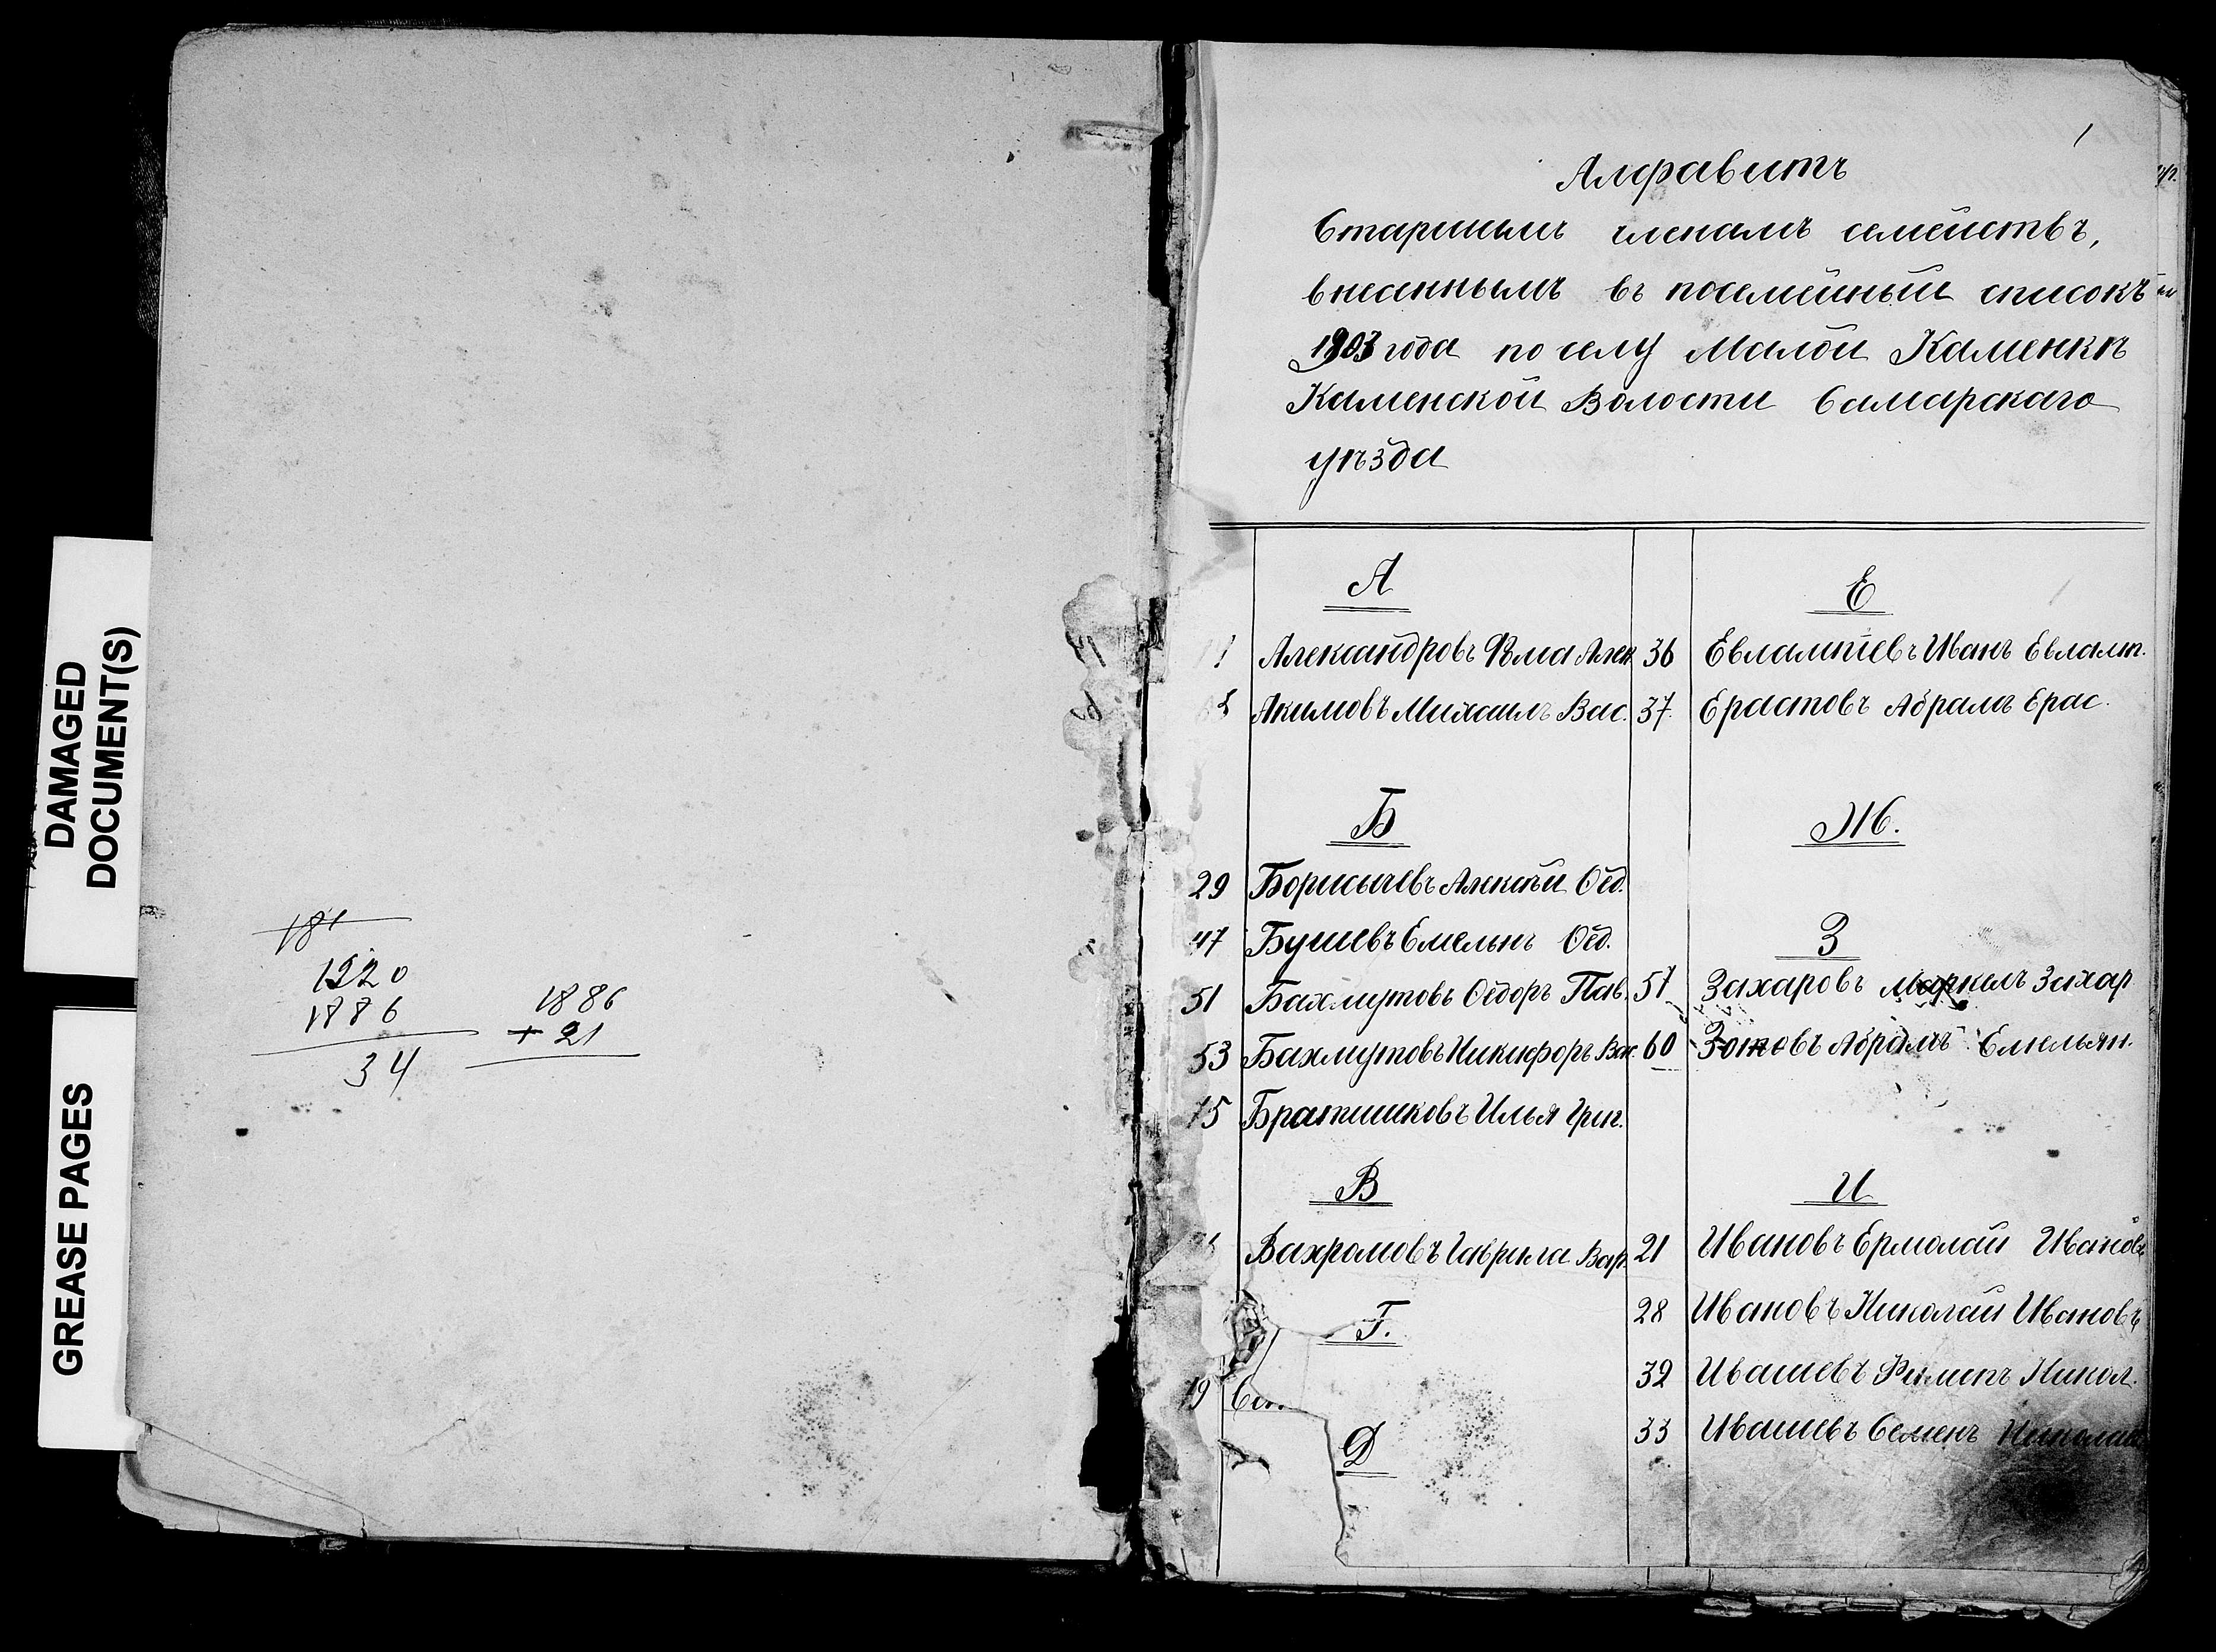 DAMAGED
DOCUMENT(S)
GREASE PAGES
181
1220
1886
34
1886
+ 21
1
Алфавитъ
Старшимъ членамъ семействъ,
внесеннымъ въ посемейный списокъ
1903 года по селу Малой Каменкѣ
Каменской Волости Самарскаго
уѣзда
А
Александровъ Фома Алек
Акимовъ Михаилъ Вас.
Б
29 Борисычевъ Алексѣй Ѳед.
47 Бушевъ Емельнъ Ѳед.
51 Бахмутовъ Ѳедоръ Пав.
53 Бахмутовъ Никифоръ Вас.
75 Братишковъ Илья Григ.
В
Вахромовъ Гаврила Вахр.
Г.
19
Д
Е
36 Евлампіевъ Иванъ Евламп.
37. Ерастовъ Абрамъ Ерас.
Ж.
З
57 Захаровъ Маркелъ Захар
60 Зотовъ Абрамъ Емельян.
И
21 Ивановъ Ермолай Ивановъ
28 Ивановъ Николай Ивановъ
32 Ивашевъ Филипъ Никол.
33 Ивашевъ Семенъ Николаев